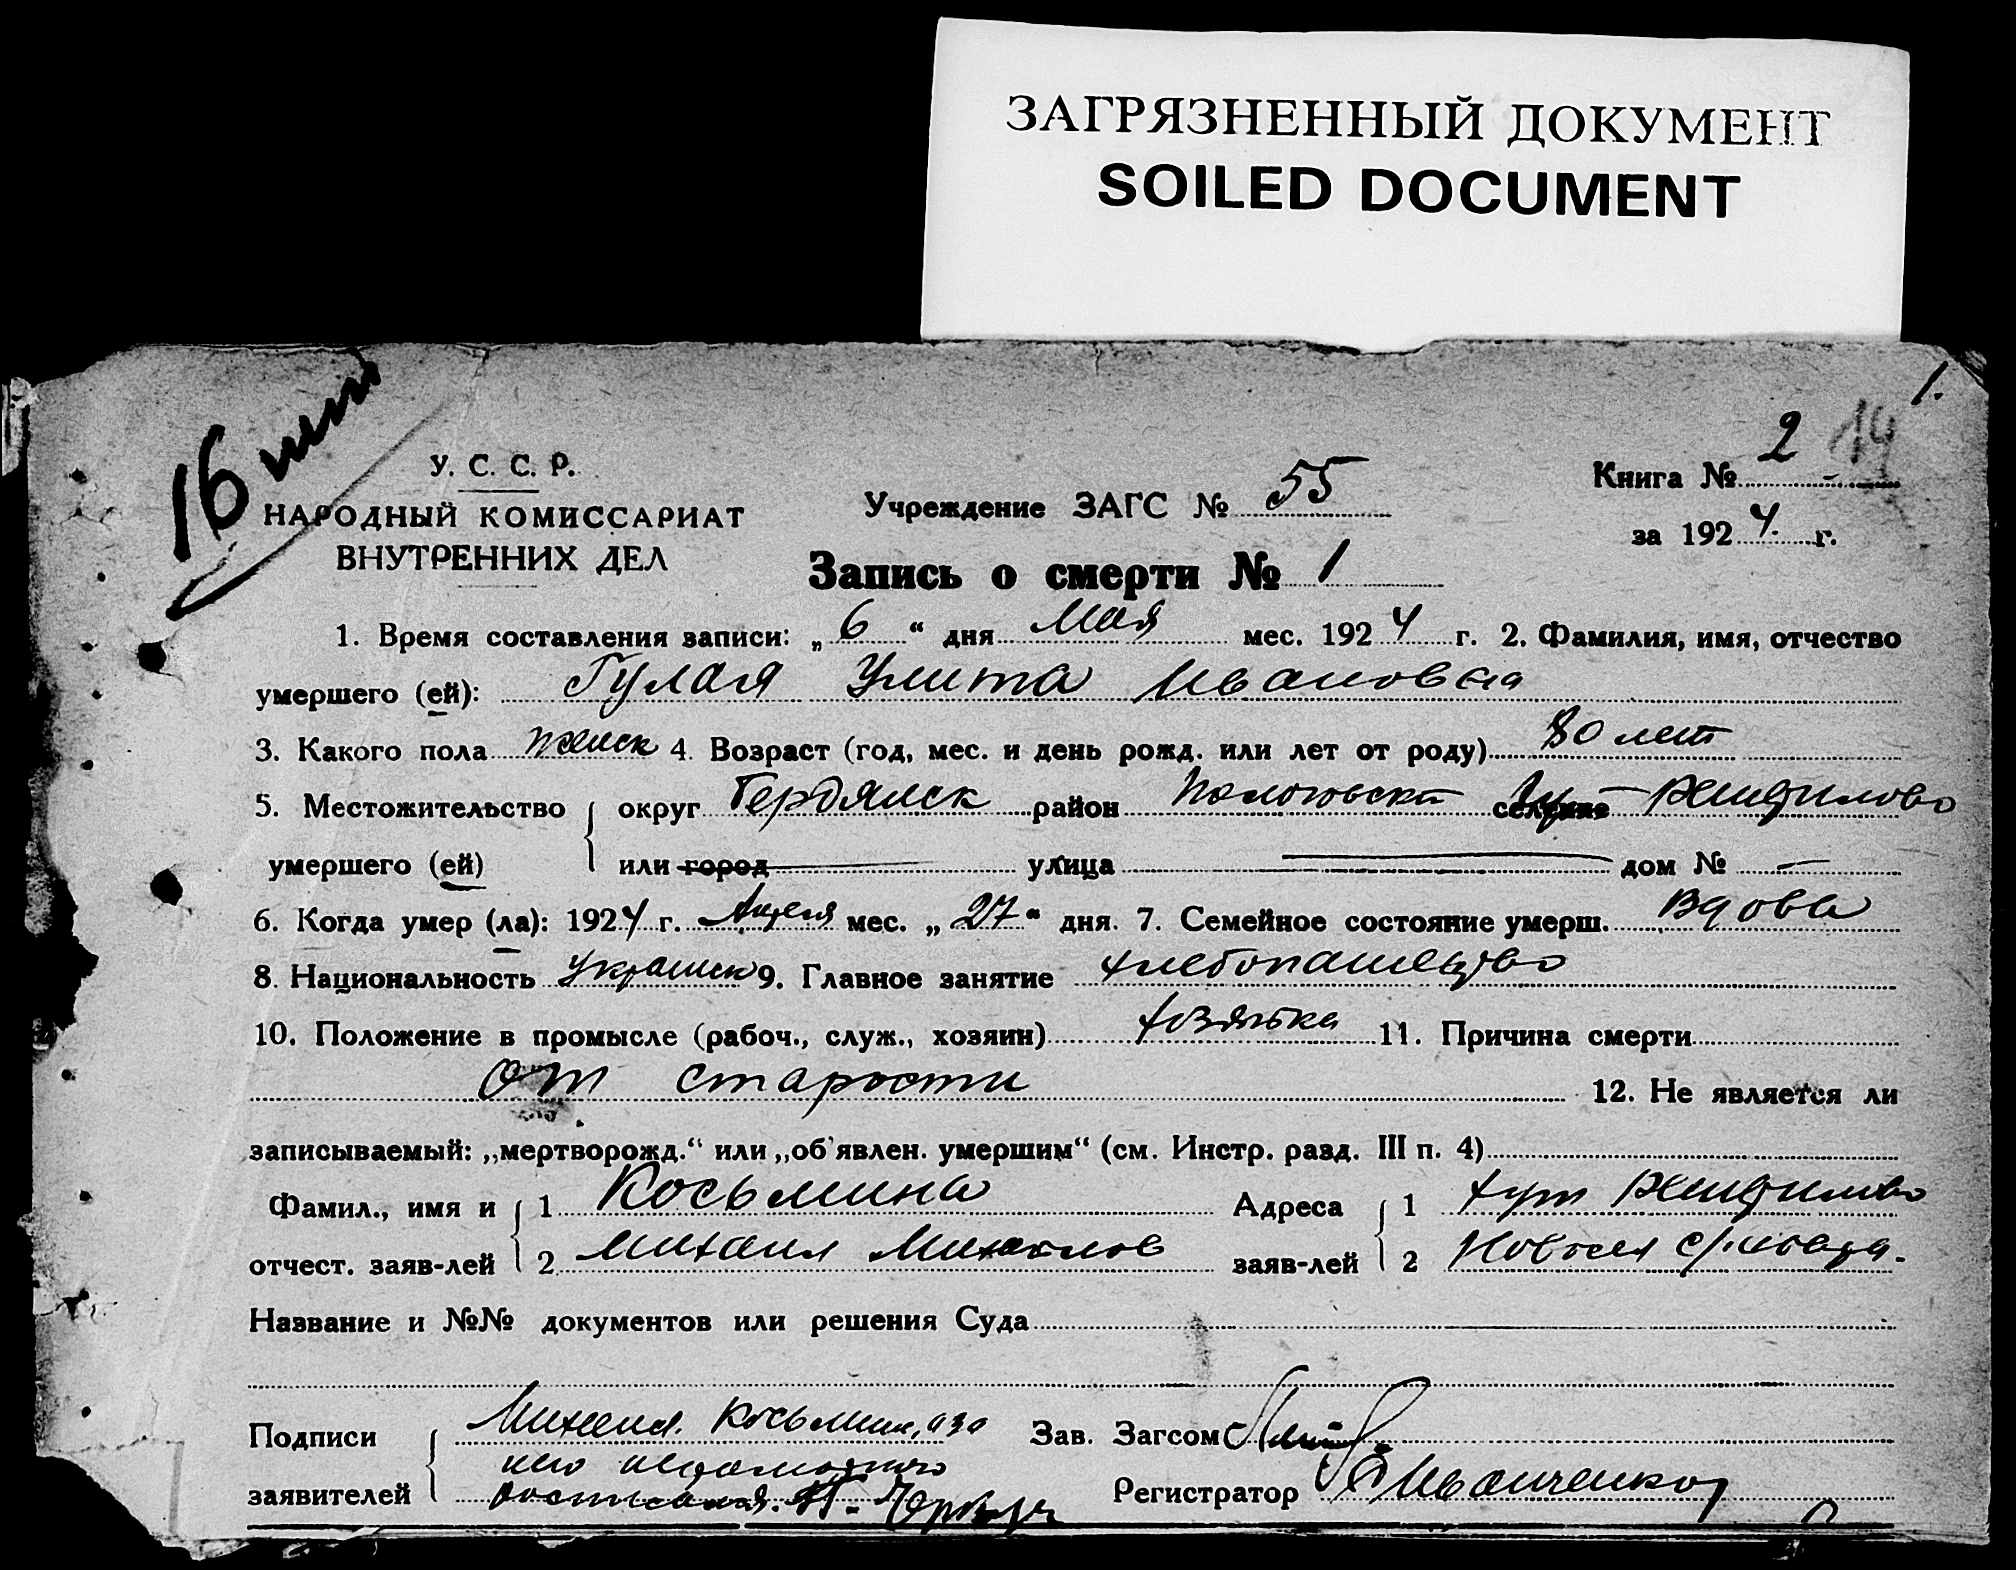 ЗАГРЯЗНЕННЫЙ ДОКУМЕНТ
SOILED DOCUMENT
1.
16 шт
У. С. С. Р.
НАРОДНЫЙ КОМИССАРИАТ
ВНУТРЕННИХ ДЕЛ
Учреждение ЗАГС № 55
Книга № 2 14
за 1924 г.
Запись о смерти № 1
1. Время составления записи: „6“ дня Мая мес. 1924 г. 2. Фамилия, имя, отчество
умершего (ей): Гулая Улита Ивановна
3. Какого пола женск 4. Возраст (год, мес. и день рожд. или лет от роду) 80 лет
5. Местожительство округ Бердянск район Пологовский
умершего (ей) или город улица дом № —
6. Когда умер (ла): 1924 г. Апреля мес. „27“ дня. 7. Семейное состояние умерш. Вдова
8. Национальность Украинск 9. Главное занятие хлебопашество
10. Положение в промысле (рабоч., служ., хозяин) хозяйка 11. Причина смерти
от старости 12. Не является ли
записываемый: „мертворожд.“ или „об'явлен. умершим“ (см. Инстр. разд. III п. 4)
Фамил., имя и 1 Косьмина Адреса 1 хут
отчест. заяв-лей 2 Михаил Михайлов заяв-лей 2
Название и №№ документов или решения Суда
Подписи Михаил Косьмин, а за Зав. Загсом
него неграмотного
заявителей росписался Регистратор Иванченко